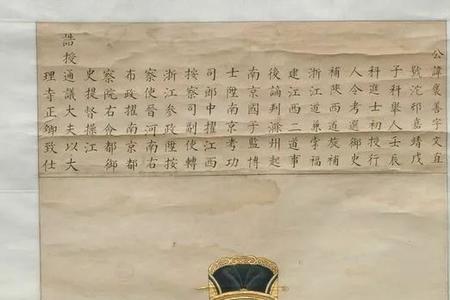 公諱褒善字文直
號沱邨嘉靖戊
子科舉人壬辰
科進士初授行
人令考選御史
補陝西道旋補
浙江道兼掌福
建江西二道事
後謫判滁州起
南京國子監博
士陞南京考功
司郎中擢江西
按察司副使轉
浙江參政陞按
察使晉河南右
布政擢南京都
察院右僉都御
史提督操江
誥授通議大夫以大
理寺正卿致仕